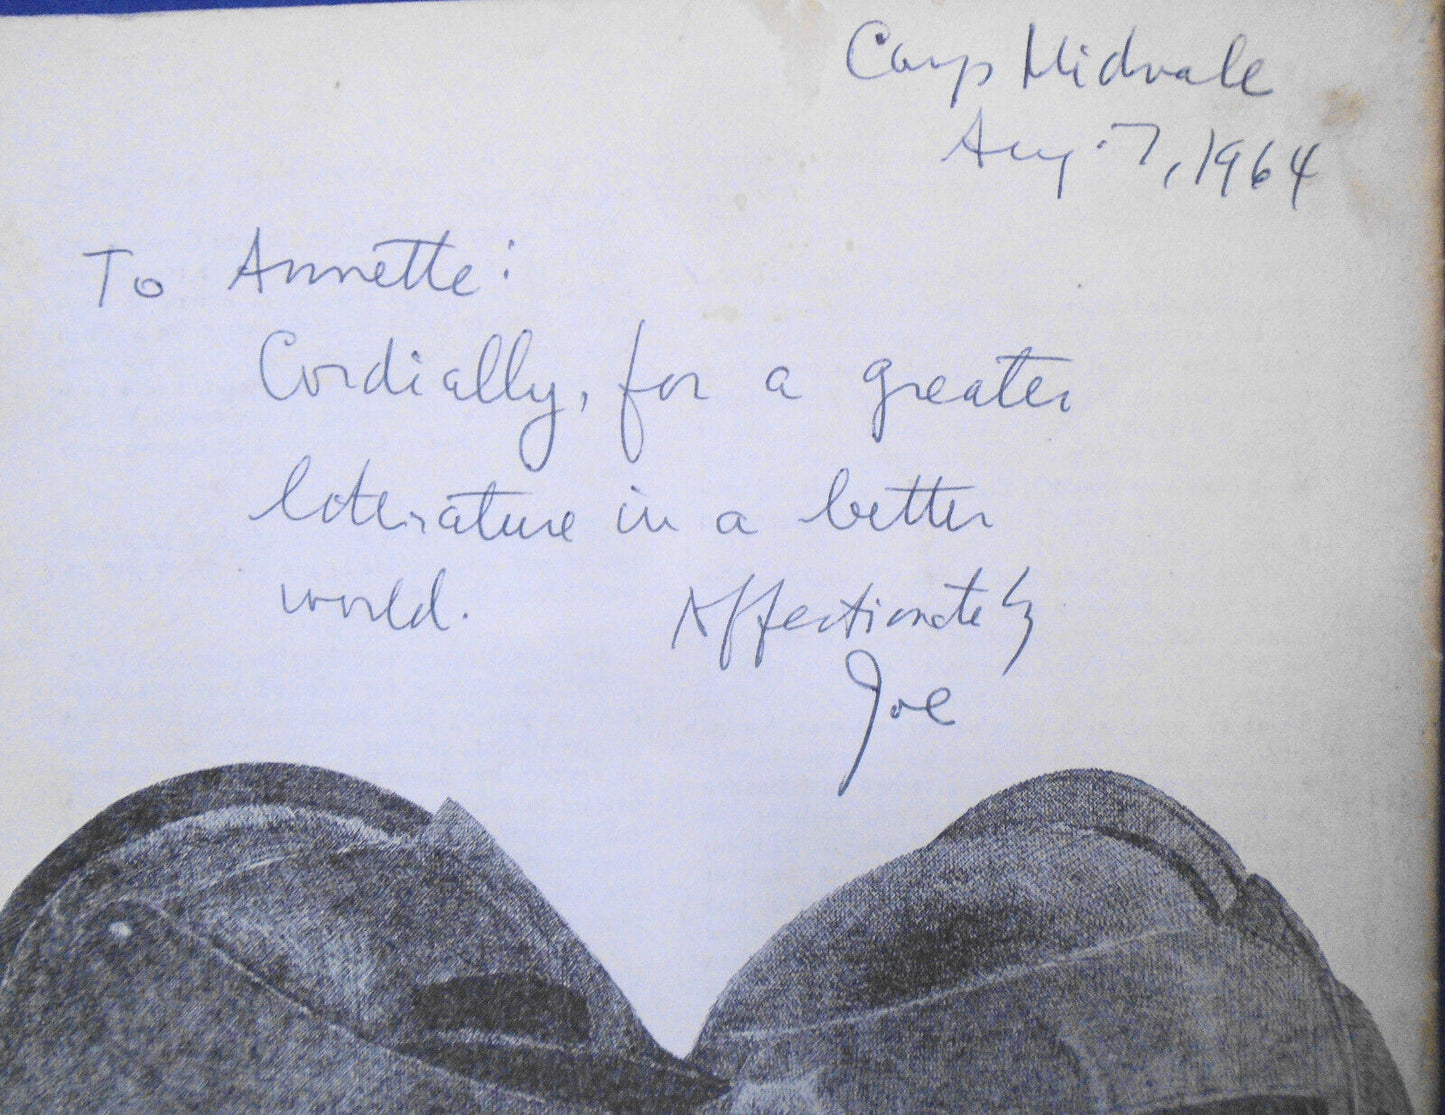 Camp Midvale
Aug. 7, 1964
To Annette:
Cordially, for a greater
literature in a better
world. Affectionately
Joe